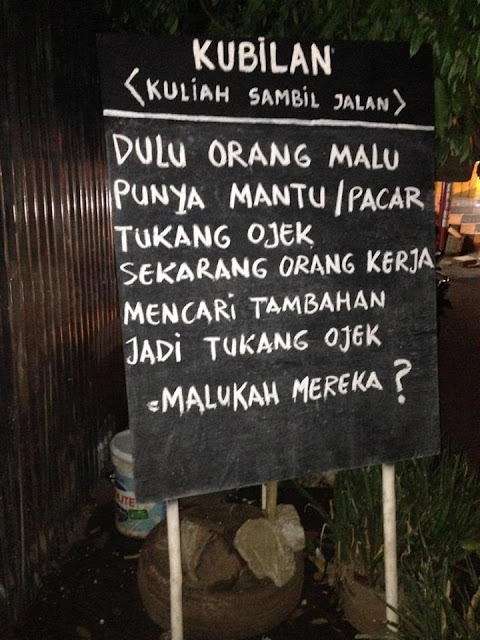 KUBiLAN
<KULiAH SAMBiL JALAN>
DULU ORANG MALU
PUNYA MANTU/PACAR
TUKANG OJEK
SEKARANG ORANG KERJA
MENCARi TAMBAHAN
JADi TUKANG OJEK
=MALUKAH MEREKA?